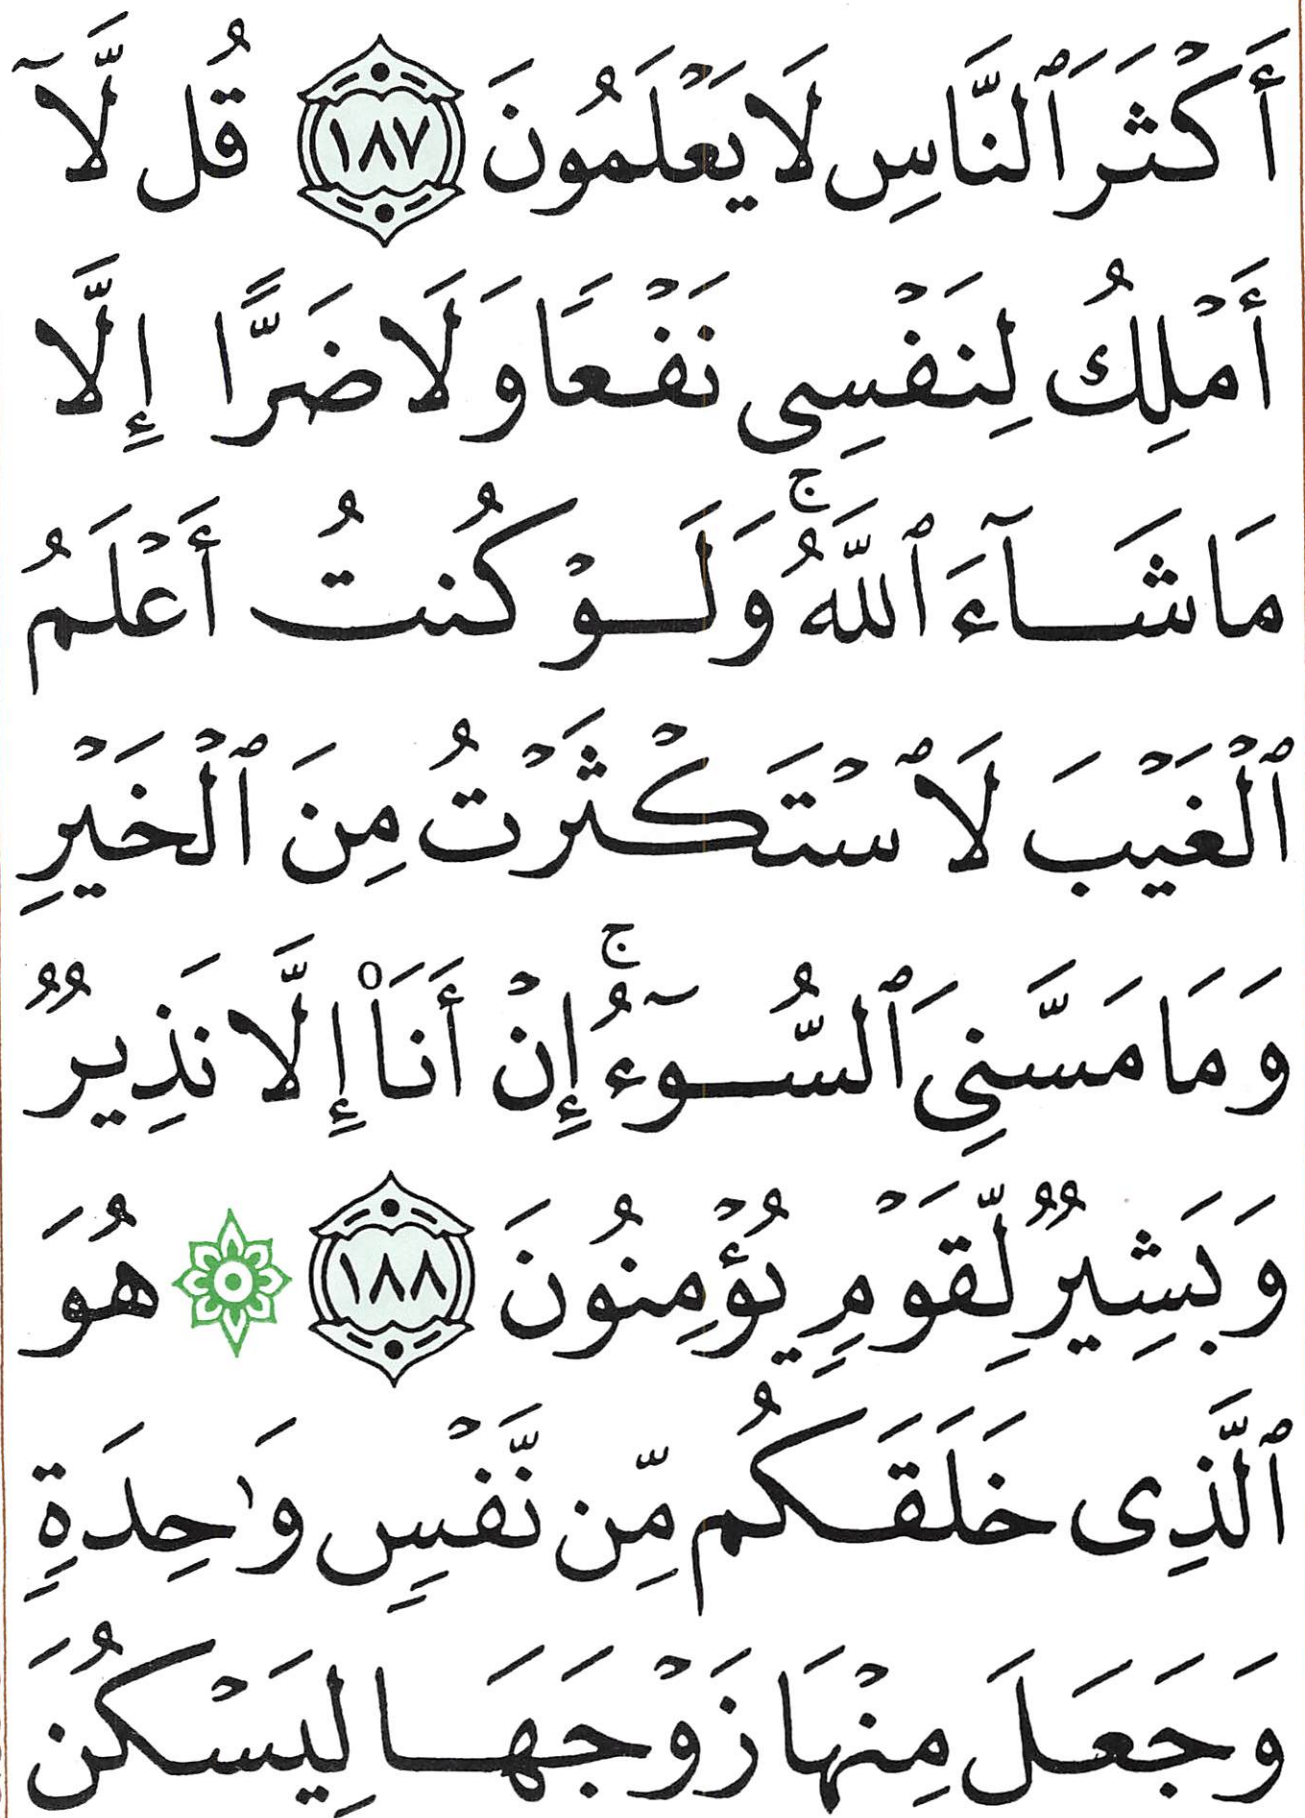 أَكْثَرَ ٱلنَّاسِ لَا يَعْلَمُونَ ١٨٧ قُل لَّآ
أَمْلِكُ لِنَفْسِى نَفْعًا وَلَا ضَرًّا إِلَّا
مَا شَآءَ ٱللَّهُ ۚ وَلَوْ كُنتُ أَعْلَمُ
ٱلْغَيْبَ لَٱسْتَكْثَرْتُ مِنَ ٱلْخَيْرِ
وَمَا مَسَّنِىَ ٱلسُّوٓءُ ۚ إِنْ أَنَا۠ إِلَّا نَذِيرٌ
وَبَشِيرٌ لِّقَوْمٍ يُؤْمِنُونَ ١٨٨ ۞ هُوَ
ٱلَّذِى خَلَقَكُم مِّن نَّفْسٍ وَٰحِدَةٍ
وَجَعَلَ مِنْهَا زَوْجَهَا لِيَسْكُنَ